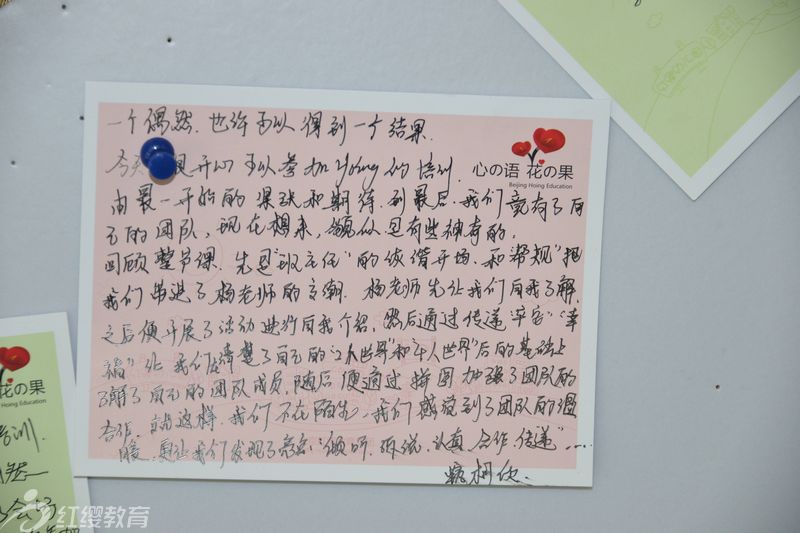 一个偶然,也许可以得到一个结果.
今天很开心可以参加young的培训.
心の语 花の果
Beijing Hoing Education
由最一开始的紧张和期待到最后,我们竟有了自
己的团队,现在想来,貌似是有些神奇的.
回顾整节课.先是"班主任"的诙谐开场.和"帮规"把
我们带进了杨老师的高潮.杨老师先让我们自我了解.
之后便开展了活动进行自我介绍,然后通过传递"平安""幸
福"让我们在清楚了自己的"2本世界"和"车人世界"后的基础上
了解了自己的团队成员,随后便通过拼图加强了团队的
合作,就这样,我们不在陌生,我们感觉到了团队的温
暖,更让我们发现了亮点:"倾听、诉说、认真、合作、传递"......
柯欣.
花の果
Hoing Education
培训.
红缨教育